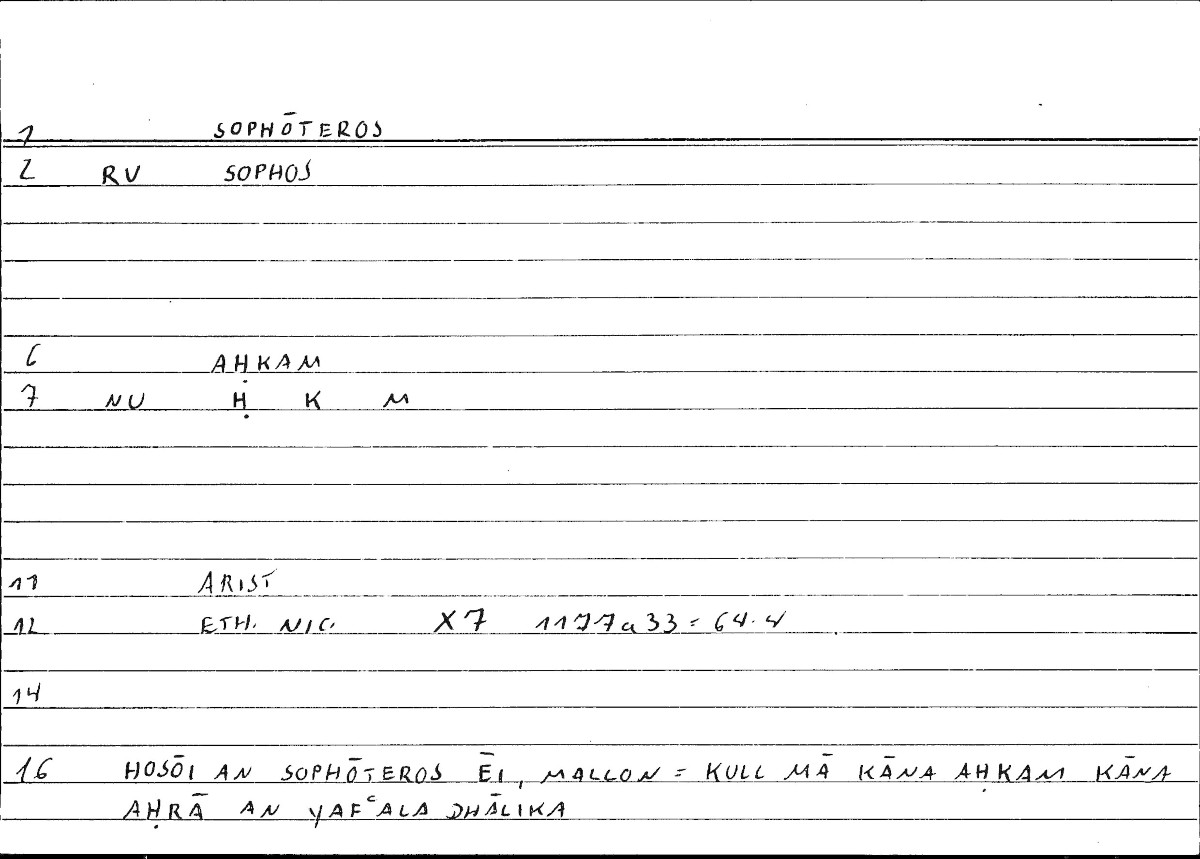 1 SOPHŌTEROS
2 RV SOPHOS
6 AḤKAM
7 NU Ḥ K M
11 ARIST
12 ETH. NIC. X7 1177a33 = 64.4
14
16 HOSŌI AN SOPHŌTEROS ĒI, MALLON = KULL MĀ KĀNA AḤKAM KĀNA
AḤRĀ AN YAFᶜALA DHĀLIKA